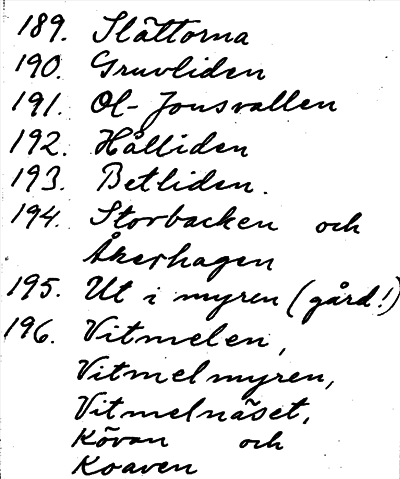 189. Slåttorna
190. Gruvliden
191. Ol-Jonsvallen
192. Hålliden
193. Betliden.
194. Storbacken och
Åkerhagen
195. Ut i myren (gård!)
196. Vitmelen,
Vitmelmyren,
Vitmelnäset,
Kövan och
Koaven